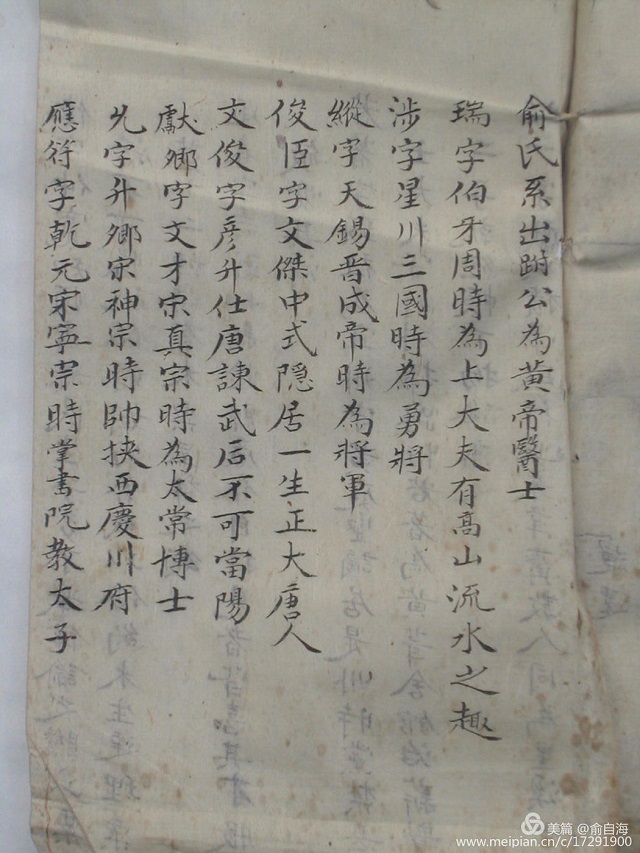 俞氏系出跗公為黃帝醫士
瑞字伯牙周時為上大夫有髙山流水之趣
涉字星川三國時為勇將
縱字天錫晋成帝時為將軍
俊臣字文傑中式隐居一生正大唐人
文俊字彦升仕唐諫武后不可當陽
獻卿字文才宗真宗時為太常博士
允字升卿宋神宗時帥挾西慶川府
應符字乾元宋寧宗時掌書院教太子
美篇 @俞白海
www.meipian.cn/c/17291900